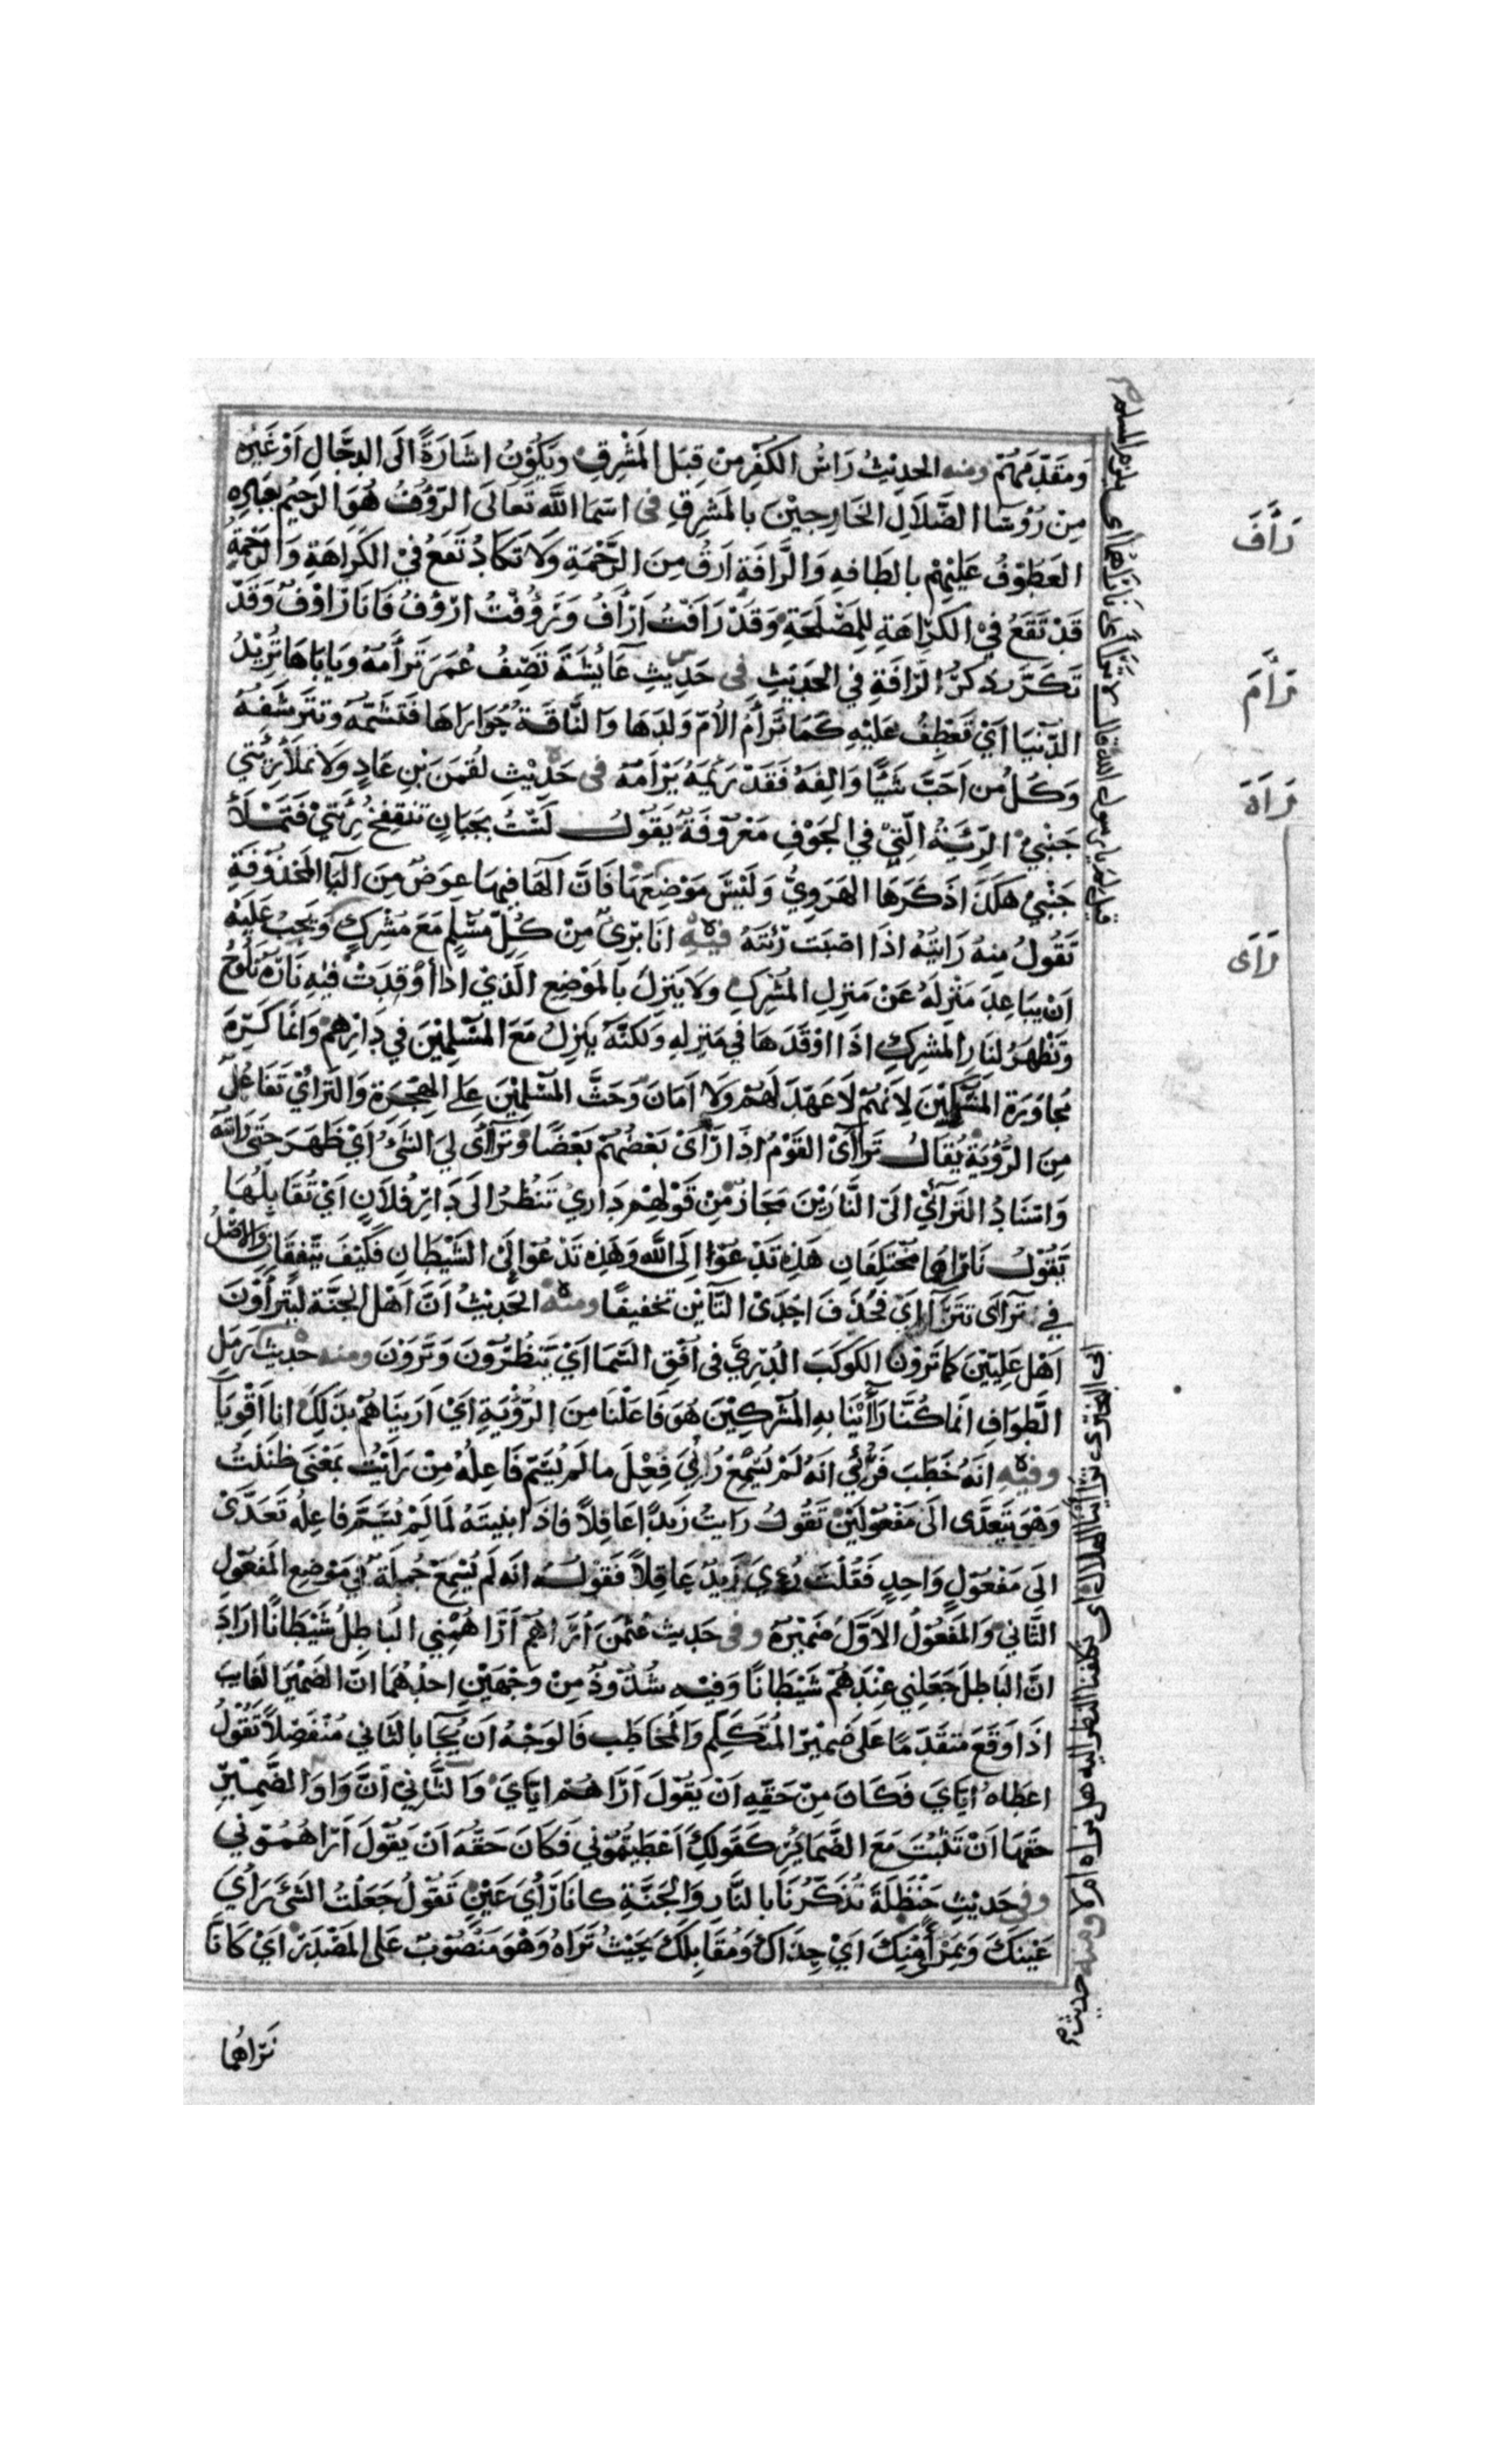 وَمقَدّمهُمْ ومنه الحدِيْثُ رَاسُ الكُفْرِ مِنْ قِبَلِ المَشْرِقِ وَيَكُوْنُ اشَارَةً الَى الدجَّالِ اَوْ غَيْرِه
مِنْ رُؤسَا الضَّلاَلِ الخَارِجِيْنَ بالمَشرِقِ فى اسْمَا اللَّه تَعَالَى الرّؤفُ هُوَ الرحِيْمُ بعِبَادِه
العَطُوْفُ عَلَيْهِمْ بالطَافهِ وَالرَّافَةِ ارَقُ مِنَ الرَّحْمَةِ وَلاَ تَكَادُ تَقَعُ فيْ الكَرَاهَةِ وَالرَحْمَةُ
قَدْ تَقَعُ فيْ الكَرَاهَةِ لِلمَصْلَحَةِ وَقَدْ رَافْتُ اَرْأفُ وَرَؤُفْتُ ارْؤُفُ فَانَا رَاوْفٌ وَقَدْ
تَكَرَّرَ ذكْرُ الرَافَةِ فِي الحَدِيْثِ فى حَدِيثِ عَايُشَةَ تَصِفُ عُمَرَ تَرأَمهُ وَيَابَاهَا تُرِيْدُ
الدّنيَا ايْ تَعْطِفُ عَلَيْهِ كَمَا تَرأَمُ الاُمّ وَلدَهَا وَالنَّاقَةُ حُوَارَاهَا فَتَشُمَّهُ وَتتَرشَفهُ
وَكُلُ مَن احَبَّ شَيْأً وَالِفَهُ فَقَدْ رَئِمَهُ يَرْامُهُ فى حَدِيْثِ لقْمَنَ بْنِ عَادٍ وَلاَ تملَأ رِئَتي
جَنْبِيْ الرِّئَيةُ الّتِيْ في الجَوْفِ مَعْرُوفَةٌ يَقُوْلُ لَسْتُ بجَبَانٍ تنتفِخُ رِئَتِيْ فتَمْلأُ
جَنْبِيْ هكَذَا ذَكَرَهَا الهَرَوِيُّ وَلَيْسَ مَوْضِعهَا فَانَّ الهَا فيهَا عِوَضٌ مِنَ اليَا المَحْذُوفَةِ
تَقُولُ مِنهُ رَايتُهُ اذَا اصَبتَ رِئتَهُ فيْهِ انَا بَرِىٌ مِنْ كُلِّ مسْلِمٍ مَعَ مُشْرِكٍ وَيَجِبُ عَلَيْهِ
اَنْ يبَاعِدَ مَنْزِلَهُ عَنْ مَنزِلِ المشْرِكِ وَلاَ يَنزِلَ بالمَوْضِعِ الَّذِيْ اذا أوْقِدَتْ فيْهِ نَارُهُ تَلُوْحُ
وَتَظْهَرُ لنَارِ المشرِكِ اذَا اوْقَدَهَا في مَنزِلهِ وَلكنَّهُ يَنزِلُ مَعَ المسْلِمِيْنَ في دَارِهِمْ وَانمَا كَرِهَ
مُجاوَرَة المشركيْنَ لاِنهُمْ لاَ عَهْدَ لَهمْ وَلاَ امَانَ وَحَثَّ المسْلِميْنَ عَلى الهِجْرَةِ وَالترائيْ تَفَاعُلٌ
مِنَ الرُّؤْيَةِ يُقَالُ تَرآأىْ القَوْمُ اذَا رَأىْ بَعْضُهُمْ بَعْضًا وَترآأى ليَ الشَىُ ايْ ظَهَرَ حَتى رَايتهُ
وَاسْنَادُ التَرآئيْ الىَ النَّارَيْنِ مَجَازٌ مِنْ قَوْلِهِمْ دَارِيْ تَنظُرُ الىَ دَارِ فُلاَنٍ ايْ تُقَابِلُهَا
تَقوْلُ نَارَاهمَا مُخْتلِفَانِ هَذِهِ تَدْعُوْا الَى اللَّه وَهَذِهِ تَدْعُوْا الَى الشَّيْطانِ فَكَيْفَ يتّفِقَانِ وَالاَصْلُ
في ترآأى تتَرَآاىْ فحُذِفَ احْدَىْ التَّائيْنِ تخفيفًا ومنه الحَدِيْثُ انَّ اهْل الجَنّةِ ليتَرأوْنَ
اهْل عِلِّيّيْنَ كما تَرَوْنَ الكَوكَبَ الدُرِّيَّ فى افُقِ السَّمَا ايْ يَنظُرُونَ وَيَرَوْنَ ومنه حَدِيْثُ رَمَل
الطَّوَافِ انمَا كُنَّا رَاأيْنَا بِهِ المُشْركِيْنَ هُوَ فَاعَلْنَا مِنَ الرّؤْيَةِ ايْ ارَيْنَاهُمْ بذَلِكَ انا اقْوِيَا
وفيْهِ انهُ خَطَبَ فَرُئِيَ انَهُ لَمْ يُسْمِعْ رُائيَ فِعْلَ ما لَمْ يُسَمّ فَاعِلُهُ مِنْ رَايْتُ بمَعْنَى ظَنَنْتُ
وَهْوَ يَتَعَدَّى الىَ مَفْعُوْلَيْنِ تَقُولُ رَايتُ زَيدًا عَاقِلاً فاذَا بنيتَهُ لمَا لَمْ يُسَمَّ فاعِلهُ تَعَدَّىْ
الىَ مَفْعُوْلٍ وَاحِدٍ فَقُلْتَ رُءيَ زَيدٌ عَاقِلاً فَقَوْلُهُ انهُ لَم يُسْمِعْ جُملَةٌ في مَوْضِعِ المَفعُوْلِ
الثَّانِيْ وَالمَفعُوْلُ الاَوَّلُ ضَمِيْرُهُ وفى حَدِيث عُثْمَنَ اُرَاهُمْ اَرَاهُمْنِي البَاطِلُ شَيْطَانًا ارَادَ
انَّ البَاطِلَ جَعَلنِي عِنْدَهُمْ شَيْطَانًا وَفيْهِ شُذُوْذٌ مِنْ وَجْهَيْنِ احْدُهُمَا انّ الضَمِيْرَ الغَايبَ
اذَا وَقَعَ مُتَقَدّمًا عَلَى ضَمِيْرِ المُتَكَلِّمِ وَالمُخَاطَبِ فَالوَجْهُ انْ يُجَا بالثَّاني مُنْفَصِلاً تَقُوْلُ
اعطَاهُ ايّايَ فَكَانَ مِنْ حَقّهِ انْ يَقُوْلَ اَرَاهُمْ ايّايَ وَالثَّانِيْ انَّ وَاوَ الضَّمِيْرِ
حَقهَا انْ تَثْبُتَ مَعَ الضَّمَائِرِ كَقَوْلِكَ اَعْطَيْتُمُوْني فَكَانَ حَقّهُ انْ يَقُوْلَ اَرَاهُمُوْني
وفى حَدِيْثِ حَنْظَلَةَ تُذَكِّرُنَا بالنَّارِ وَالجَنَّةِ كانا رَأيَ عَيْنٍ تَقُوْلُ جَعَلْتُ الشَىَ رَأيَ
عَيْنكَ وَبمَرْأىً مِنْكَ ايْ حِذَاكَ وَمُقَابِلَكَ بحَيْثُ تَرَاهُ وَهْوَ مَنصُوْبٌ عَلى المَصْدَرِ ايْ كانَا
نَرَاهُمَا
رَأَفَ
رَأَمَ
رَاَهَ
رَاَى
قيل لِمَ يا رسول الله قال لا تتراأى نَارَاهُمَا اى يلزم المسلم
ابى البخترى تراأينا الهلال اى تكلفنا النظر اليه هل نراه ام لا ومنه حديث